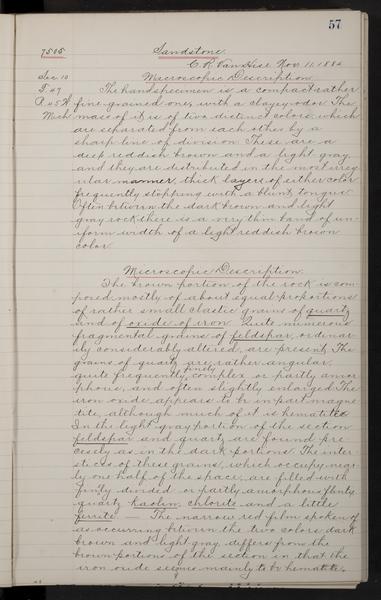 57
7505 Sandstone.
C. R. Van Hise Nov. 11, 1882
Sec. 10 Macroscopic Description
T. 47 The hand specimen is a compact rather
R. 45 W. fine grained one, with a clayey odor. The
Mich mass of it is of two distinct colors which
are separated from each other by a
sharp line of division. These are a
deep reddish brown and a light gray
and they are distributed in the most irreg
ular manner, thick layers of either color
frequently stopping with a blunt tongue.
Often between the dark brown and light
gray rock there is a very thin band of un-
iform width of a light reddish brown
color.
Microscopic Description.
The brown portion of the rock is com-
posed mostly of about equal proportions
of rather small clastic grains of quartz
and of oxide of iron. Quite numerous
fragmental grains of feldspar, ordinar-
ily considerably altered, are present. The
grains of quartz are rather angular,
finely
quite frequently complex or partly amor
phous, and often slightly enlarged. The
iron oxide appears to be in part magne
tite, although much of it is hematite.
In the light gray portion of the section
feldspar and quartz are found pre
cisely as in the dark portions. The inter-
stices of these grains, which occupy near
ly one half of the space, are filled with
finely divided or partly amorphous flinty
quartz, kaolin, chlorite and a little
ferrite. — The narrow red film spoken of
as occurring between the two colors dark
brown and light gray differs from the
brown portions of the section in that the
iron oxide seems mainly to be hematite.